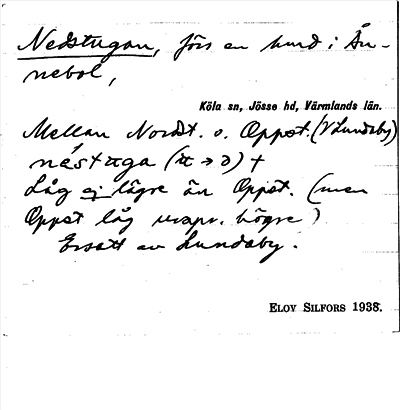 Nedstugan, förs en hmd i Ån-
nebol,
Köla sn, Jösse hd, Värmlands län.
Mellan Nordst. o. Oppst. (V Lundsby)
nástuga
Låg ej lägre än Oppst. (men
Oppst låg urspr. högre)
Ersatt av Lundsby.
ELOV SILFORS 1938.